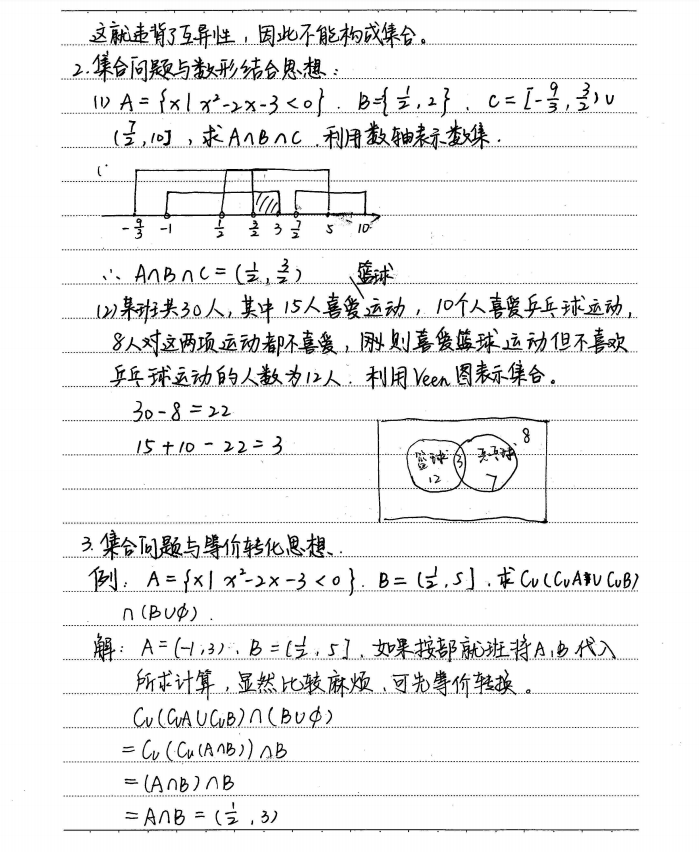 这就违背了互异性，因此不能构成集合。
2.集合问题与数形结合思想：
(1) A={x| x²-2x-3<0}. B={½,2}. C=[-9/3,3/2)∪
(7/2,10]，求A∩B∩C.利用数轴表示数集.
-9/3 -1 1/2 3/2 3 7/2 5 10
∴ A∩B∩C=(½,3/2)
篮球
(2)某班共30人，其中15人喜爱运动，10个人喜爱乒乓球运动，
8人对这两项运动都不喜爱，则喜爱篮球运动但不喜欢
乒乓球运动的人数为12人.利用Veen图表示集合。
30-8=22
15+10-22=3
8
篮球 3 乒乓球
12 7
3.集合问题与等价转化思想.
例：A={x| x²-2x-3<0}. B=(½,5].求C∪(C∪A∪C∪B)
∩(B∪φ).
解：A=(-1,3)、B=(½,5]、如果按部就班将A,B代入
所求计算，显然比较麻烦、可先等价转换。
C∪(C∪A∪C∪B)∩(B∪φ)
=C∪(C∪(A∩B))∩B
=(A∩B)∩B
=A∩B=(½,3)